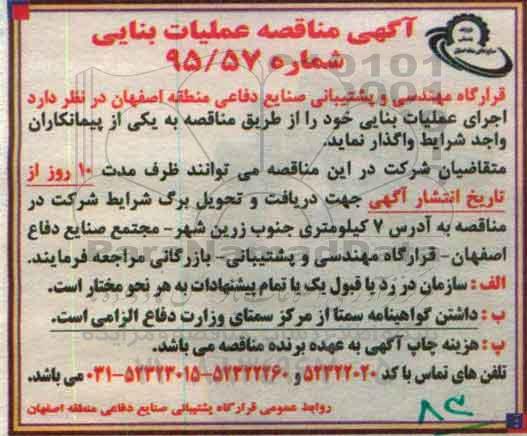 آگهی مناقصه عملیات بنایی
شماره ۹۵/۵۷
قرارگاه مهندسی و پشتیبانی صنایع دفاعی منطقه اصفهان در نظر دارد
اجرای عملیات بنایی خود را از طریق مناقصه به یکی از پیمانکاران
واجد شرایط واگذار نماید.
متقاضیان شرکت در این مناقصه می توانند ظرف مدت ۱۰ روز از
تاریخ انتشار آگهی جهت دریافت و تحویل برگ شرایط شرکت در
مناقصه به آدرس ۷ کیلومتری جنوب زرین شهر- مجتمع صنایع دفاع
اصفهان- قرارگاه مهندسی و پشتیبانی- بازرگانی مراجعه فرمایند.
الف : سازمان در رد یا قبول یک یا تمام پیشنهادات به هر نحو مختار است.
ب : داشتن گواهینامه سمتا از مرکز سمتای وزارت دفاع الزامی است.
پ : هزینه چاپ آگهی به عهده برنده مناقصه می باشد.
تلفن های تماس با کد ۵۲۳۲۲۰۲۰ و ۵۲۳۲۲۲۶۰-۵۲۳۲۳۰۱۵-۰۳۱ می باشد.
روابط عمومی قرارگاه پشتیبانی صنایع دفاعی منطقه اصفهان